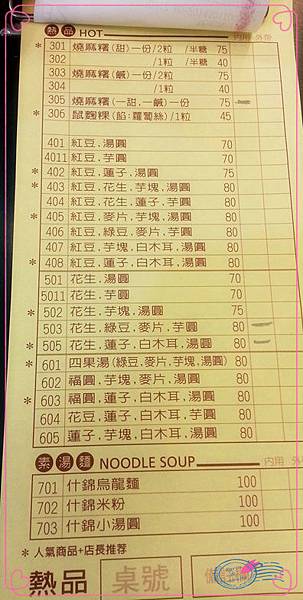 熱品 HOT 內用 外帶
* 301 燒麻糬(甜)一份/2粒 /半糖 75
302 /1粒 /半糖 40
303 燒麻糬(鹹)一份/2粒 75
304 /1粒 40
305 燒麻糬(一甜.一鹹)一份 75
* 306 鼠麴粿(餡:蘿蔔絲)/1粒 45
401 紅豆.湯圓 70
4011 紅豆.芋圓 70
* 402 紅豆.蓮子.湯圓 75
* 403 紅豆.花生.芋塊.湯圓 80
404 紅豆.花生.蓮子.芋圓 80
* 405 紅豆.麥片.芋塊.湯圓 80
406 紅豆.綠豆.麥片.芋圓 80
407 紅豆.芋塊.白木耳.湯圓 80
* 408 紅豆.蓮子.白木耳.湯圓 80
501 花生.湯圓 70
5011 花生.芋圓 70
* 502 花生.芋塊.湯圓 75
503 花生.綠豆.麥片.芋圓 80
* 505 花生.蓮子.白木耳.湯圓 80
* 601 四果湯(綠豆.麥片.芋塊.湯圓) 80
602 福圓.芋塊.麥片.湯圓 80
* 603 福圓.蓮子.白木耳.湯圓 80
604 花豆.蓮子.白木耳.芋圓 80
605 蓮子.芋塊.白木耳.湯圓 80
素湯麵 NOODLE SOUP 內用 外
701 什錦烏龍麵 100
702 什錦米粉 100
703 什錦小湯圓 100
* 人氣商品+店長推荐
熱品 桌號